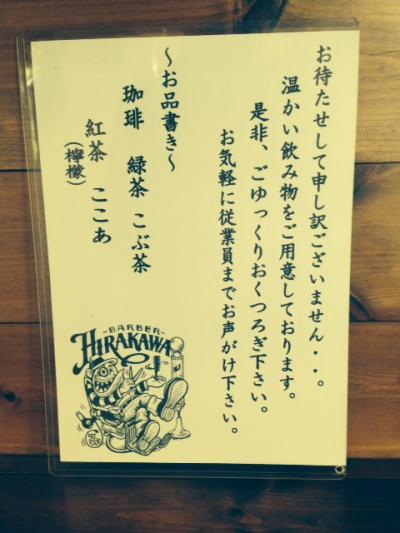 お待たせして申し訳ございません・・。
温かい飲み物をご用意しております。
是非、ごゆっくりおくつろぎ下さい。
お気軽に従業員までお声がけ下さい。
～お品書き～
珈琲 緑茶 こぶ茶
紅茶 ここあ
(檸檬)
-BARBER-
HIRAKAWA